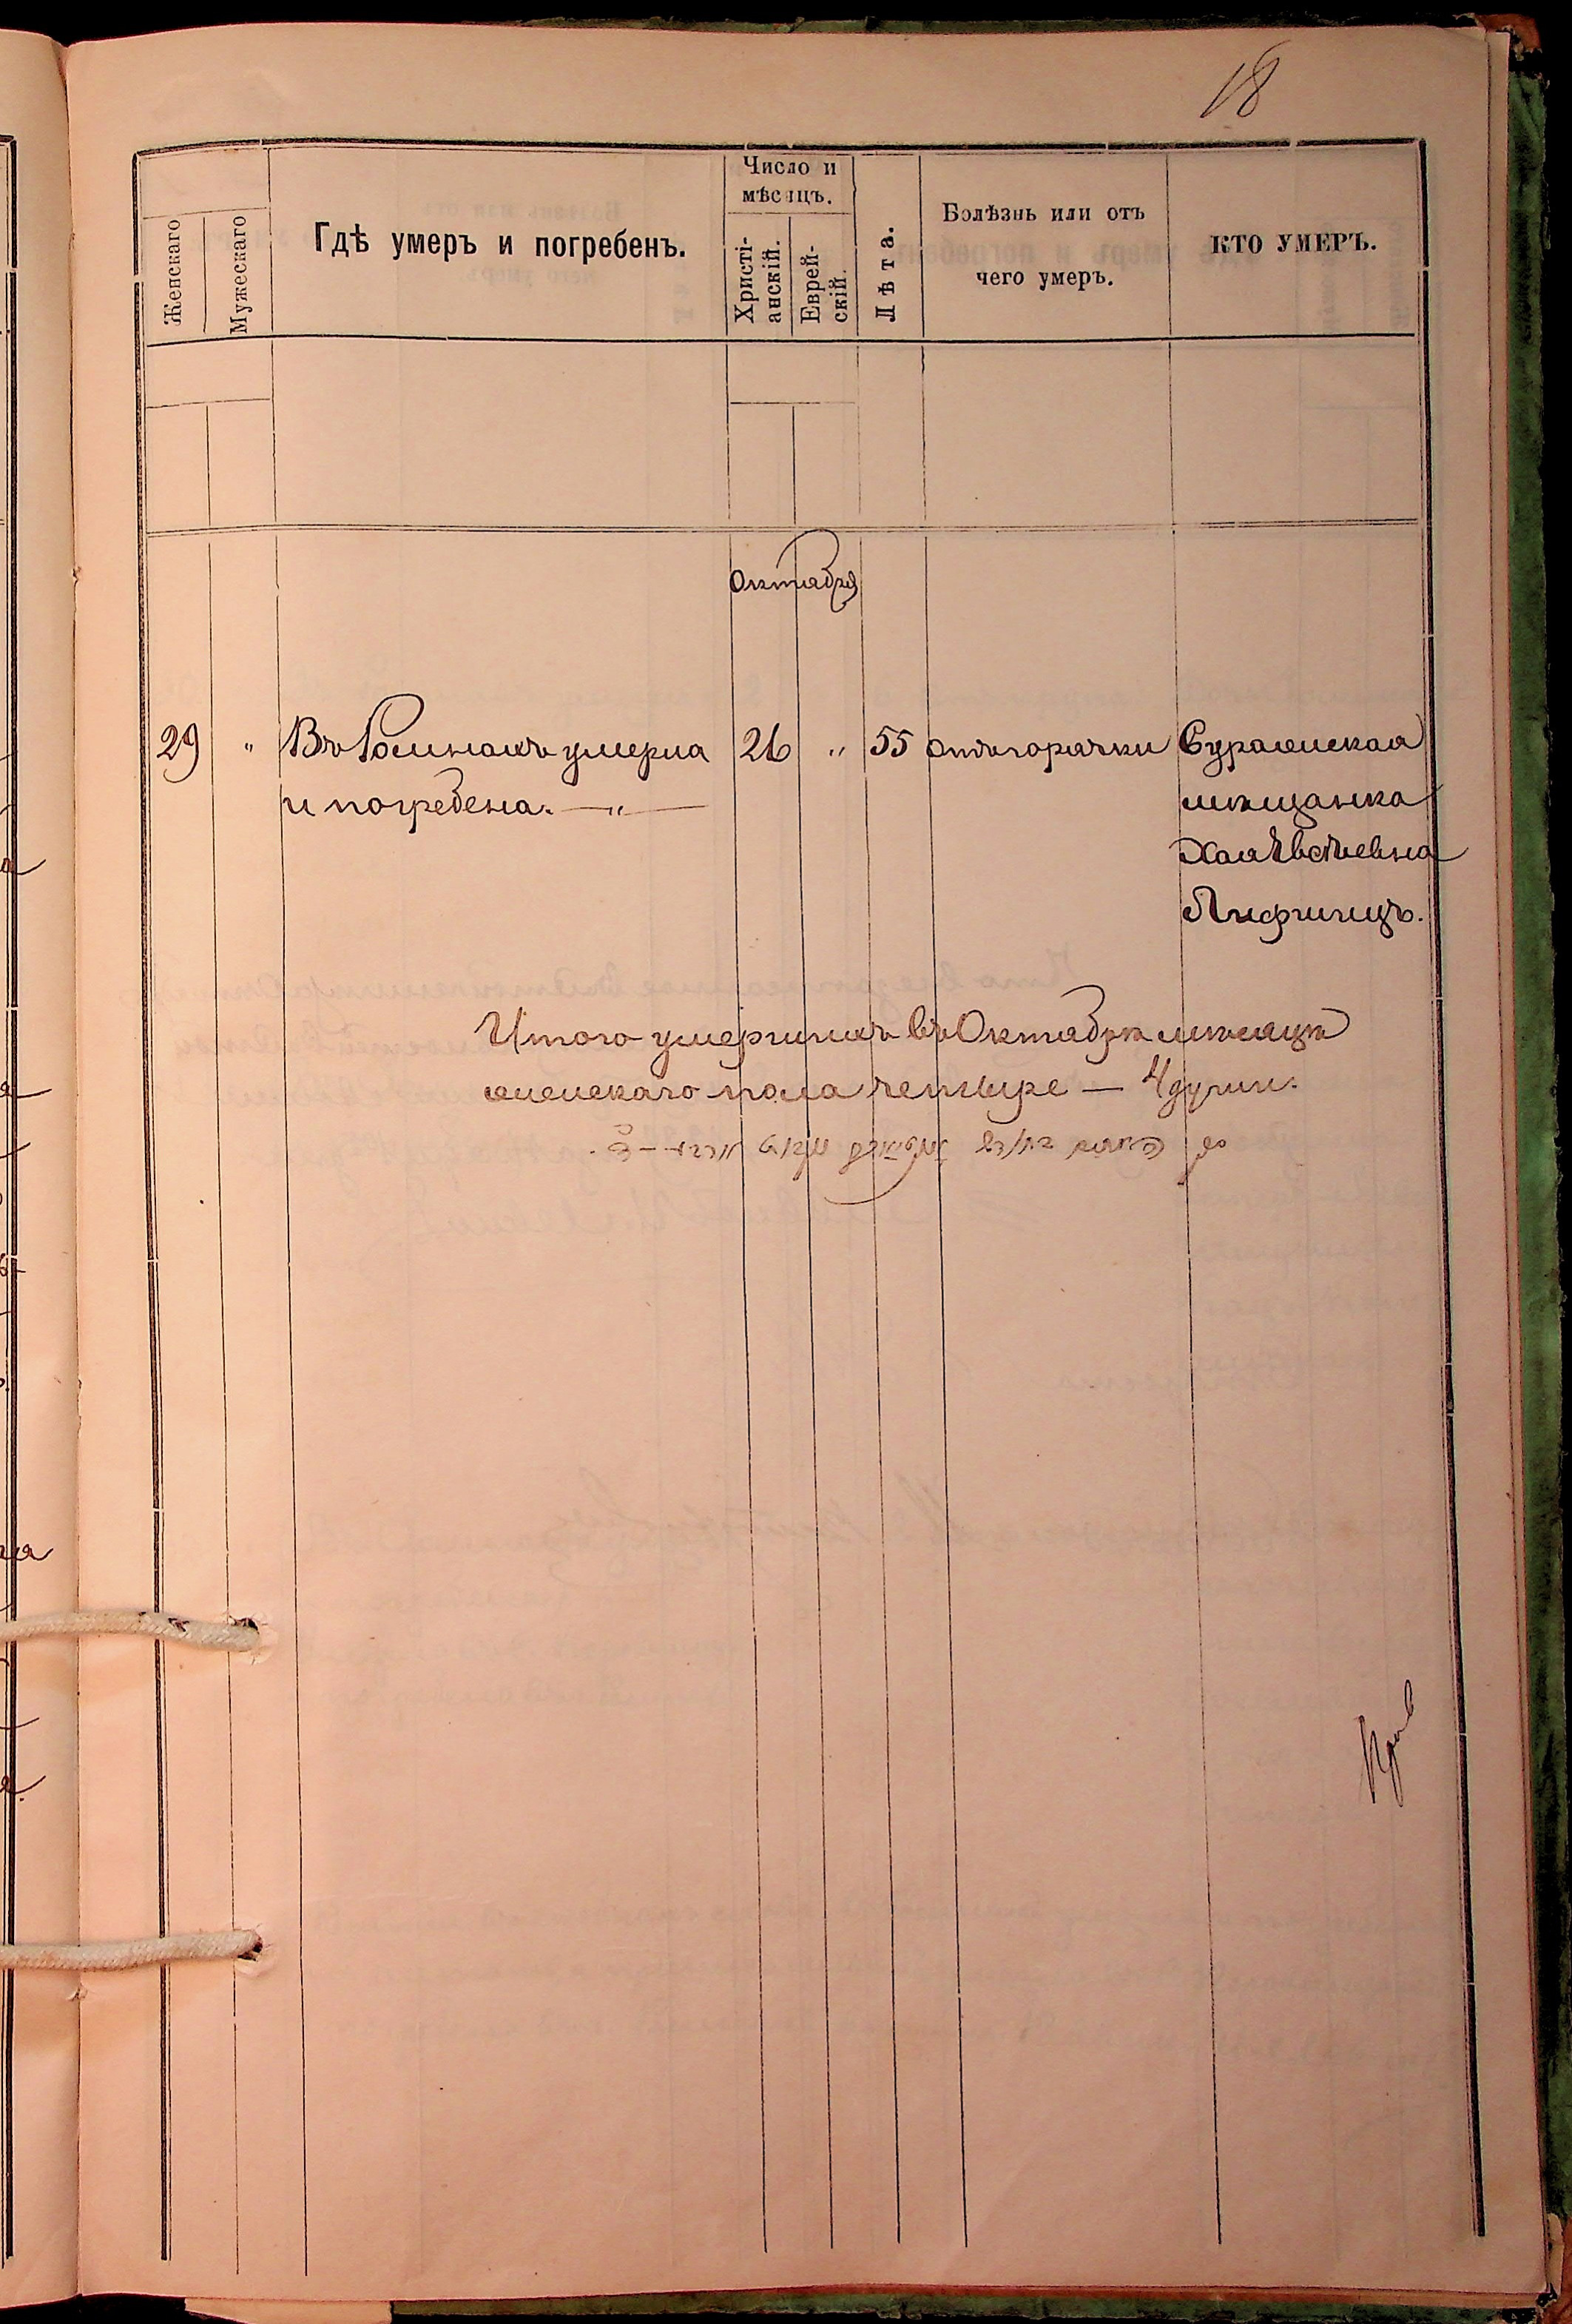 18
Женскаго
Мужескаго
Гдѣ умеръ и погребенъ.
Число и
мѣсяцъ.
Христі-
анскій.
Еврей-
скій.
Лѣта.
Болѣзнь или отъ
чего умеръ.
КТО УМЕРЪ.
Октября
29 " Въ Ромнахъ умерла 26 " 55 отъ горячки Суражская
и погребена. — " —
мѣщанка
Хая
Лифшицъ.
Итого умершихъ въ Октябрѣ мѣсяцѣ
женскаго пола четыре — 4 души.